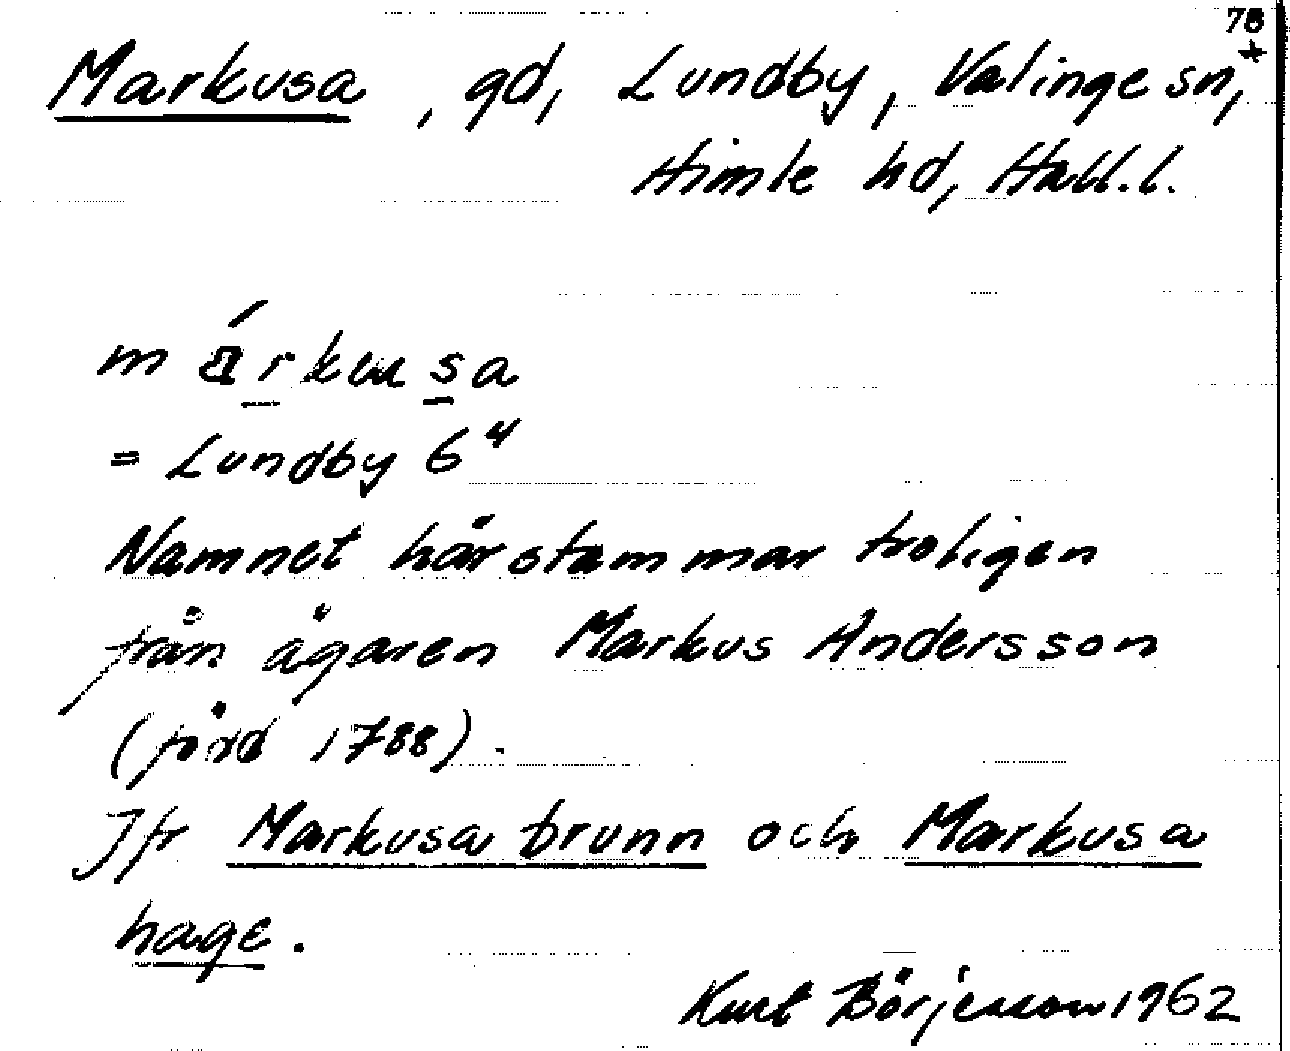 78
Markusa, gd, Lundby, Valinge sn,
Himle hd, Hall.l.
márkusa
= Lundby 6⁴
Namnet härstammar troligen
från ägaren Markus Andersson
(förd 1788).
Jfr Markusa brunn och Markusa
hage.
Kurt Börjesson 1962